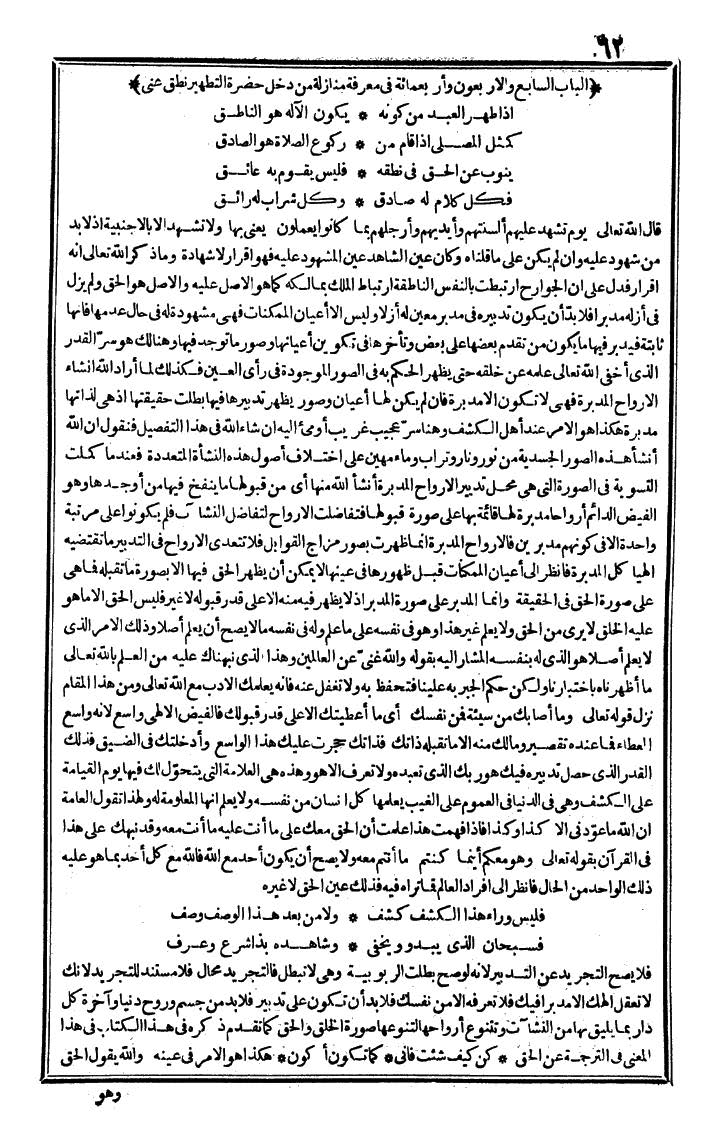 ٩٢
﴿الباب السابع والاربعون وأربعمائة فى معرفة منازلة من دخل حضرة التطهير نطق عنى﴾
اذا طهر العبد من كونه * يكون الآله هو الناطق
كمثل المصلى اذا قام من * ركوع الصلاة هو الصادق
ينوب عن الحق فى نطقه * فليس يقوم به عائق
فكل كلام له صادق * وكل شراب له رائق
قال الله تعالى يوم تشهد عليهم ألسنتهم وأيديهم وأرجلهم بما كانوا يعملون يعنى بها ولا تشهد الا بالاجنبية اذ لا بد
من شهود عليه وان لم يكن على ما قلناه وكان عين الشاهد عين المشهود عليه فهو اقرار لا شهادة وما ذكر الله تعالى انه
اقرار فدل على ان الجوارح ارتبطت بالنفس الناطقة ارتباط الملك بمالكه كما هو الاصل عليه والاصل هو الحق ولم يزل
فى أزله مدبرا فلا بد أن يكون تدبيره فى مدبر معين له أزلا وليس الا أعيان الممكنات فهى مشهودة له فى حال عدمها فانها
ثابتة فيدبر فيها ما يكون من تقدم بعضها على بعض وتأخرها فى تكوين أعيانها وصور ما توجد فيها وهنالك هو سرّ القدر
الذى أخفى الله تعالى علمه عن خلقه حتى يظهر الحكم به فى الصور الموجودة فى رأى العين فكذلك لما أراد الله انشاء
الارواح المدبرة فهى لا تكون الا مدبرة فان لم يكن لها أعيان وصور يظهر تدبيرها فيها بطلت حقيقتها اذ هى لذاتها
مدبرة هكذا هو الامر عند أهل الكشف وهنا سرّ عجيب غريب أومئ اليه ان شاء الله فى هذا التفصيل فنقول ان الله
أنشأ هذه الصور الجسدية من نور ونار وتراب وماء مهين على اختلاف أصول هذه النشأة المتعددة فعندما كملت
التسوية فى الصورة التى هى محل تدبير الارواح المدبرة أنشأ الله منها أى من قبولها ما ينفخ فيها من أوجدها وهو
الفيض الدائم أرواحا مدبرة لها قائمة بها على صورة قبولها فتفاضلت الارواح لتفاضل النشآت فلم يكونوا على مرتبة
واحدة الا فى كونهم مدبرين فالارواح المدبرة انما ظهرت بصور مزاج القوابل فلا تتعدى الارواح فى التدبير ما تقتضيه
الهياكل المدبرة فانظر الى أعيان الممكنات قبل ظهورها فى عينها لا يمكن أن يظهر الحق فيها الا بصورة ما تقبله فما هى
على صورة الحق فى الحقيقة وانما المدبر على صورة المدبر اذ لا يظهر فيه منه الا على قدر قبوله لا غير فليس الحق الا ما هو
عليه الخلق لا يرى من الحق ولا يعلم غير هذا وهو فى نفسه على ما علم وله فى نفسه ما لا يصح أن يعلم أصلا وذلك الامر الذى
لا يعلم أصلا هو الذى له بنفسه المشار اليه بقوله والله غنىّ عن العالمين وهذا الذى نبهناك عليه من العلم بالله تعالى
ما أظهرناه باختيارنا ولكن حكم الجبر به علينا فتحفظ به ولا تغفل عنه فانه يعلمك الادب مع الله تعالى ومن هذا المقام
نزل قوله تعالى وما أصابك من سيئة فمن نفسك أى ما أعطيتك الا على قدر قبولك فالفيض الالهى واسع لانه واسع
العطاء فما عنده تقصير ومالك منه الا ما تقبله ذاتك فذاتك حجرت عليك هذا الواسع وأدخلتك فى الضيق فذلك
القدر الذى حصل تدبيره فيك هو ربك الذى تعبده ولا تعرف الا هو وهذه هى العلامة التى يتحوّل لك فيها يوم القيامة
على الكشف وهى فى الدنيا فى العموم على الغيب يعلمها كل انسان من نفسه ولا يعلم انها المعلومة له ولهذا تقول العامة
ان الله ما عوّدنى الا كذا وكذا فاذا فهمت هذا علمت أن الحق معك على ما أنت عليه ما أنت معه وقد نبهك على هذا
فى القرآن بقوله تعالى وهو معكم أينما كنتم ما أنتم معه ولا يصح أن يكون أحد مع الله فالله مع كل أحد بما هو عليه
ذلك الواحد من الحال فانظر الى افراد العالم فما تراه فيه فذلك عين الحق لا غيره
فليس وراء هذا الكشف كشف * ولا من بعد هذا الوصف وصف
فسبحان الذى يبدو ويخفى * وشاهده بذا شرع وعرف
فلا يصح التجريد عن التدبير لانه لو صح بطلت الربوبية وهى لا تبطل فالتجريد محال فلا مستند للتجريد لانك
لا تعقل الهك الا مدبرا فيك فلا تعرفه الا من نفسك فلا بد أن تكون على تدبير فلا بد من جسم وروح دنيا وآخرة كل
دار بما يليق بها من النشآت وتتنوع أرواحها لتنوعها صورة الخلق والحق كما تقدم ذكره فى هذا الكتاب فى هذا
المعنى فى الترجمة عن الحق * كن كيف شئت فانى * كما تكون أكون * هكذا هو الامر فى عينه والله يقول الحق
وهو